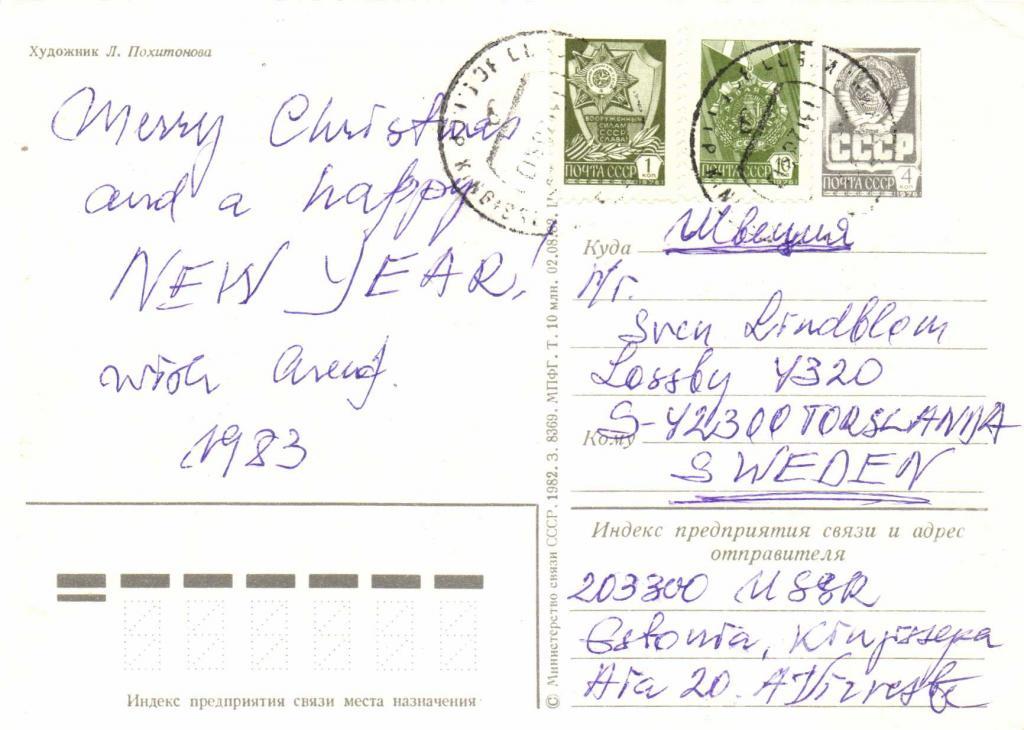 Художник Л. Похитонова
Merry Christmas
and a happy
NEW YEAR!
wish
1983
ВООРУЖЕННЫМ
СИЛАМ
СССР
СЛАВА!
1 КОП
ПОЧТА СССР
1976
10 КОП
ПОЧТА СССР
1976
СССР
ПОЧТА СССР 4 КОП
1976
Куда Швеция
Sven Lindblom
Lossby 4320
S-42300 TORSLANDA
Кому
SWEDEN
Индекс предприятия связи и адрес
отправителя
203300 USSR
Estonia, Kingissepa
Aia 20.
Индекс предприятия связи места назначения
© Министерство связи СССР. 1982. З. 8369. МПФГ. Т. 10 млн. 02.08.82.